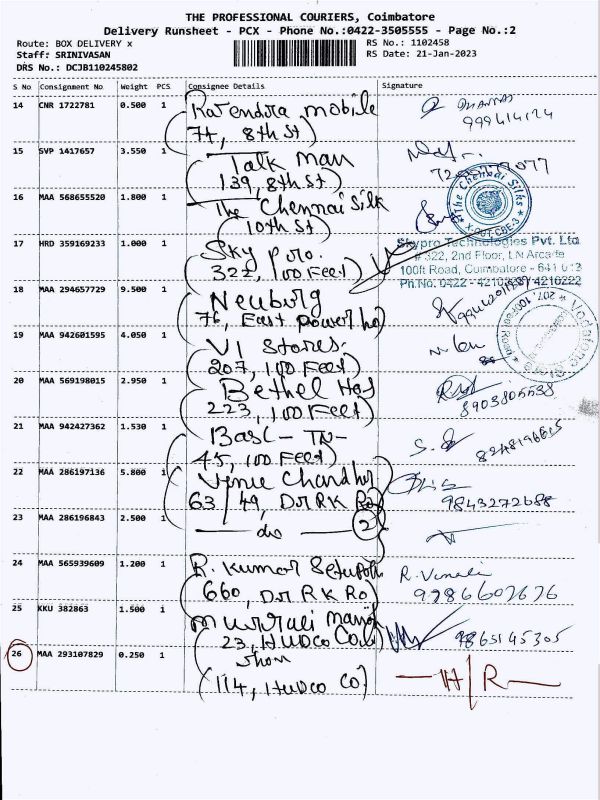 THE PROFESSIONAL COURIERS, Coimbatore
Delivery Runsheet - PCX - Phone No.:0422-3505555 - Page No.:2
Route: BOX DELIVERY x
RS No.: 1102458
Staff: SRINIVASAN
RS Date: 21-Jan-2023
DRS No.: DCJB110245802
S No Consignment No Weight PCS Consignee Details Signature
14 CNR 1722781 0.500 1 mobile
74, 8th St)
15 SVP 1417657 3.550 1 Talk man
139, 8th St)
16 MAA 568655520 1.800 1 The Chennai Silk
(10th St)
The Chennai Silks
17 HRD 359169233 1.000 1 Sky pro.
322, 100 Feet)
Skypro Technologies Pvt. Ltd
# 322, 2nd Floor, LN Arcade
100ft Road, Coimbatore - 641 012
Ph.No: 0422 - 4210222
18 MAA 294657729 9.500 1 Neuburg
76, East power ho
19 MAA 942601595 4.050 1 VI Stores.
207, 100 Feet)
20 MAA 569198015 2.950 1 Bethel
223, 100 Feet)
8903805538
21 MAA 942427362 1.530 1 - TN -
45, 100 Feet)
22 MAA 286197136 5.800 1 Chandhr
63/49, Dr RK Ro
9843272688
23 MAA 286196843 2.500 1 do 2
24 MAA 565939609 1.200 1 R. Kumar
660, Dr RK Ro
25 KKU 382863 1.500 1 Murali
23, Hudco Colo
9865145305
26 MAA 293107829 0.250 1
(114, Hudco Co)
H/R